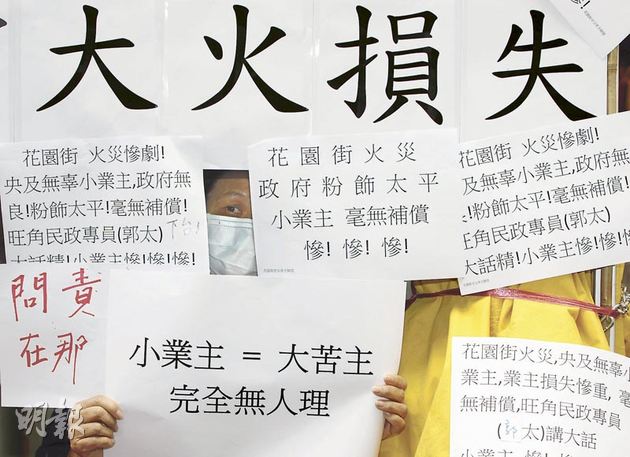 大火損失
花園街 火災慘劇!
央及無辜小業主,政府無
良!粉飾太平!毫無補償!
旺角民政專員(郭太)下台!
大話精!小業主慘!慘!慘!
花園街火災
政府粉飾太平
小業主 毫無補償
慘! 慘! 慘!
花園街 火災慘劇!
及無辜小業主,政府無
!粉飾太平!毫無補償!
角民政專員(郭太)
話精!小業主慘!慘!慘!
問責
在那
小業主 = 大苦主
完全無人理
花園街火災,央及無辜小
業主,業主損失慘重,
無補償,旺角民政專員
(郭太)講大話
小業主 慘!
明報